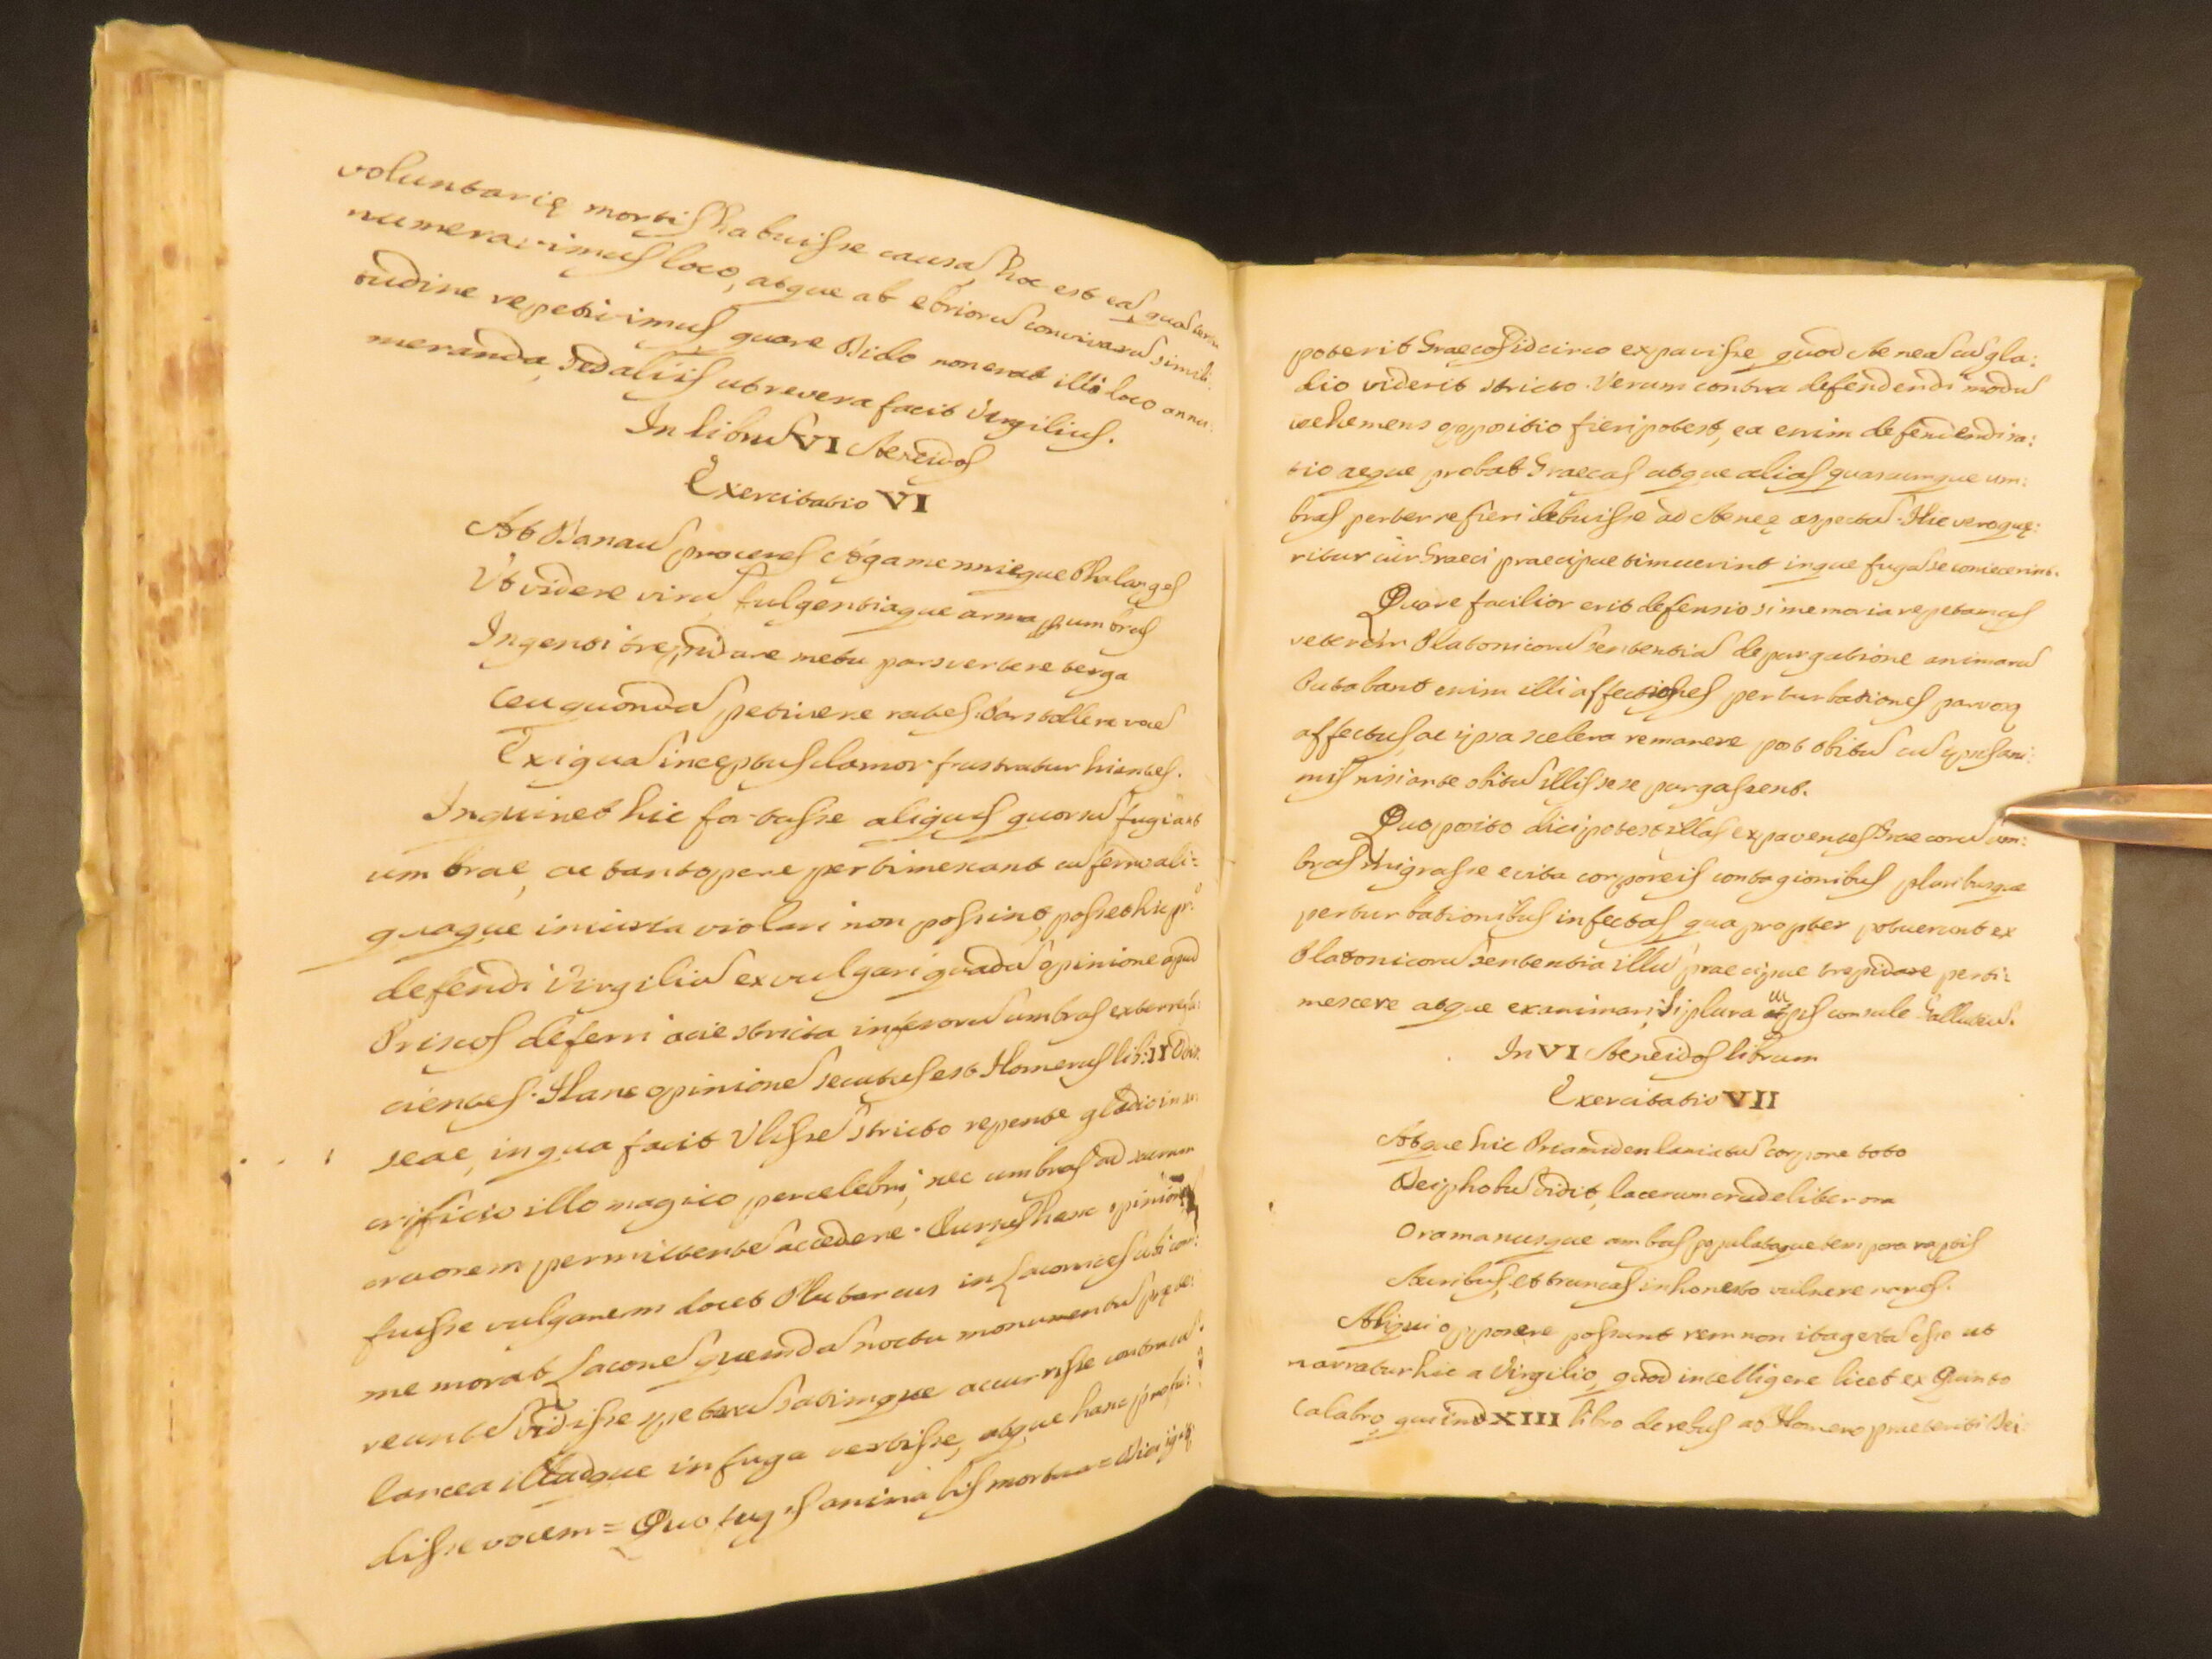 voluntarię mortis habuisse causã hoc est eas quas certo
numeravimus loco, atque ab ebriorũ convivarũ simili:
tudine repetivimus quare Dido non erat illo loco annu:
meranda, sed aliis ut revera facit Virgilius.
In librũ VI Aeneidos
Exercitatio VI
At Danaũ proceres Agamemnięque Phalanges
Ut videre virũ fulgentiaque arma p umbras
Ingenti trepidare metu pars vertere terga
Ceu quondã petivere rates. Pars tollere vocẽ
Exiguã inceptus clamor frustratur hiantes.
Inquiret hic fortasse aliquis quorsũ fugiant
umbrae, ac tantopere pertimescant cũ ferro ali:
quaque iniuria violari non possint, posset hic pr:
defendi Virgiliũ ex vulgari quadã opinione apud
Priscos deferri acie stricta inferorũ umbras exterrefa:
cientes. Hanc opinionẽ secutus est Homerus lib: II Odis:
seae, in qua facit Ulissẽ stricto repente gladio in sa
crificio illo magico percelebri, nec umbras ad sacrum
cruorem permittentẽ accedere. Rursus hanc opinionẽ
fuisse vulgarem docet Plutarcus in Laconices ubi com:
memorat Laconẽ quemdã noctu monumentũ pręte:
reuntẽ vidisse spectrũ statimque accurrisse contra cũ
lancea illadque in fuga vertisse, atque hanc profu:
disse vocem = Quo fugis anima bis mortua =
poterit Graecos idcirco expavisse quod Aeneã cũ gla:
dio viderit stricto. Verum contra defendendi modũ
vehemens oppositio fieri potest, ea enim defendendi ra:
tio aeque probat Graecas atque alias quascumque um:
bras perterrefieri debuisse ad Aenęę aspectũ. Hic vero quę:
ritur cur Graeci praecipue timuerint inque fugã se coniecerint.
Quare facilior erit defensio si memoria repetamus
veterem Platonicorũ sententiã de purgatione animarũ
Putabant enim illi affectiones perturbationes pravosq
affectus, ac ipsa scelera remanere post obitũ cũ ipsis ani:
mis nisi ante obitũ illis sese purgassent.
Quo posito dici potest illas expaventes Graecorũ um:
bras migrasse e vita corporeis contagionibus pluribusque
perturbationibus infectas qua propter potuerunt ex
Platonicorũ sententia illũ praecipue trepidare perti:
mescere atque exanimari, si plura cupis consule Gallutiũ.
In VI Aeneidos librum
Exercitatio VII
Atque hic Priamiden laniatũ corpore toto
Deiphobũ vidit, lacerum crudeliter ora
Ora manusque ambas populataque tempora raptis
Auribus, et truncas inhonesto vulnere nares.
Aliqui opponere possunt rem non ita gestã esse ut
narratur hic a Virgilio, quod intelligere licet ex Quinto
Calabro qui in XIII libro de rebus ab Homero praeteriti Dei